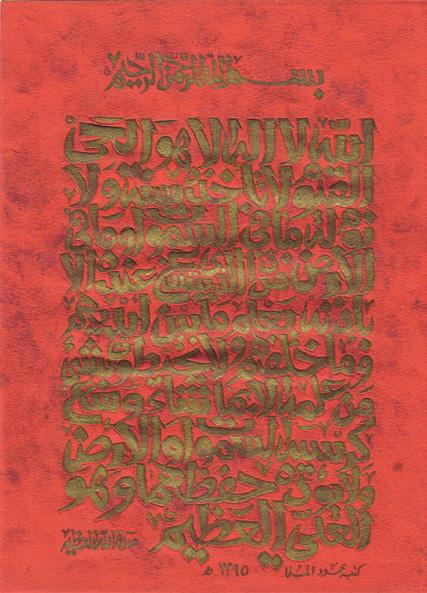 بسم الله الرحمن الرحيم
الله لا اله الا هو الحي
القيوم لا تاخذه سنة ولا
نوم له ما في السموات وما في
الارض من ذا الذي يشفع عنده الا
باذنه يعلم ما بين ايديهم
وما خلفهم ولا يحيطون بشيء
من علمه الا بما شاء وسع
كرسيه السموات والارض
ولا يؤده حفظهما وهو
العلي العظيم صدق الله العظيم
كتبه محمود الملا ١٣٩٥ هـ